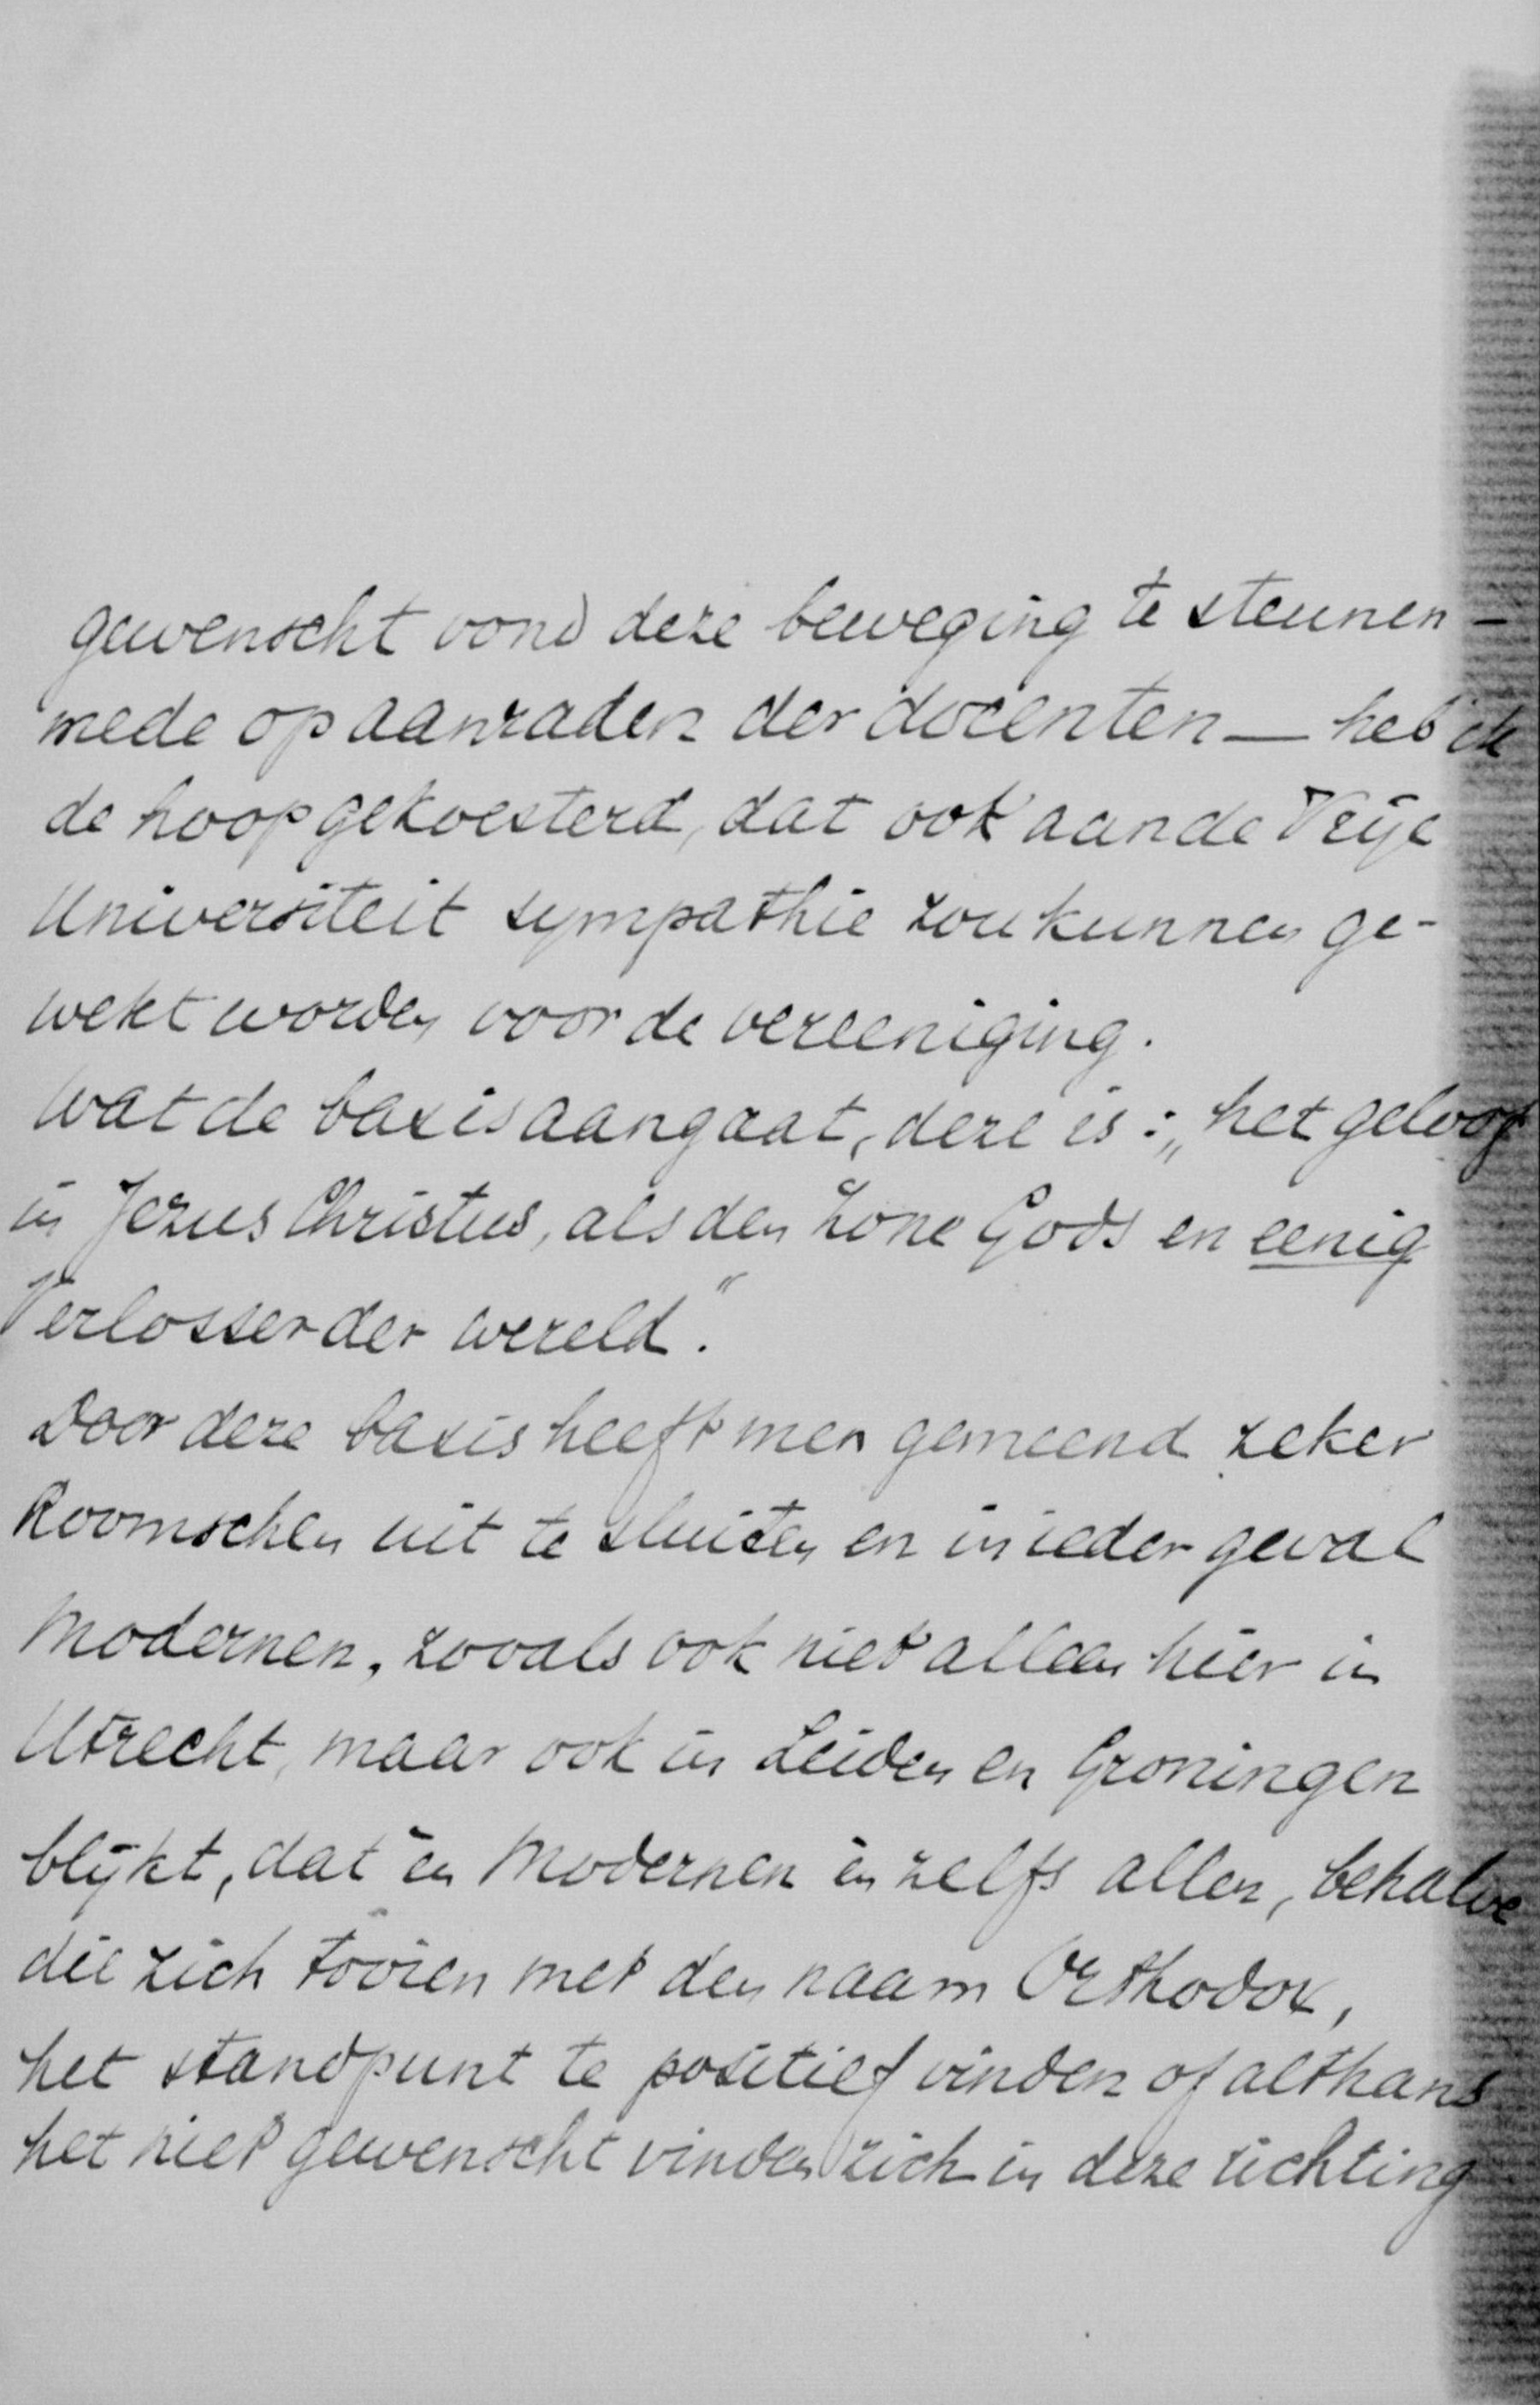 gewenscht vond deze beweging te steunen –
mede op aanraden der docenten — heb ik
de hoop gekoesterd, dat ook aan de Vrije
Universiteit sympathie zou kunnen ge-
wekt worden voor de vereeniging.
Wat de basis aangaat, deze is : „het geloof
in Jezus Christus, als den Zone Gods en eenig
Verlosser der wereld."
Door deze basis heeft men gemeend zeker
Roomschen uit te sluiten en in ieder geval
Modernen, zooals ook niet alleen hier in
Utrecht, maar ook in Leiden en Groningen
blijkt, dat èn Modernen èn zelfs allen, behalve
die zich tooien met den naam Orthodox,
het standpunt te positief vinden of althans
het niet gewenscht vinden zich in deze richting